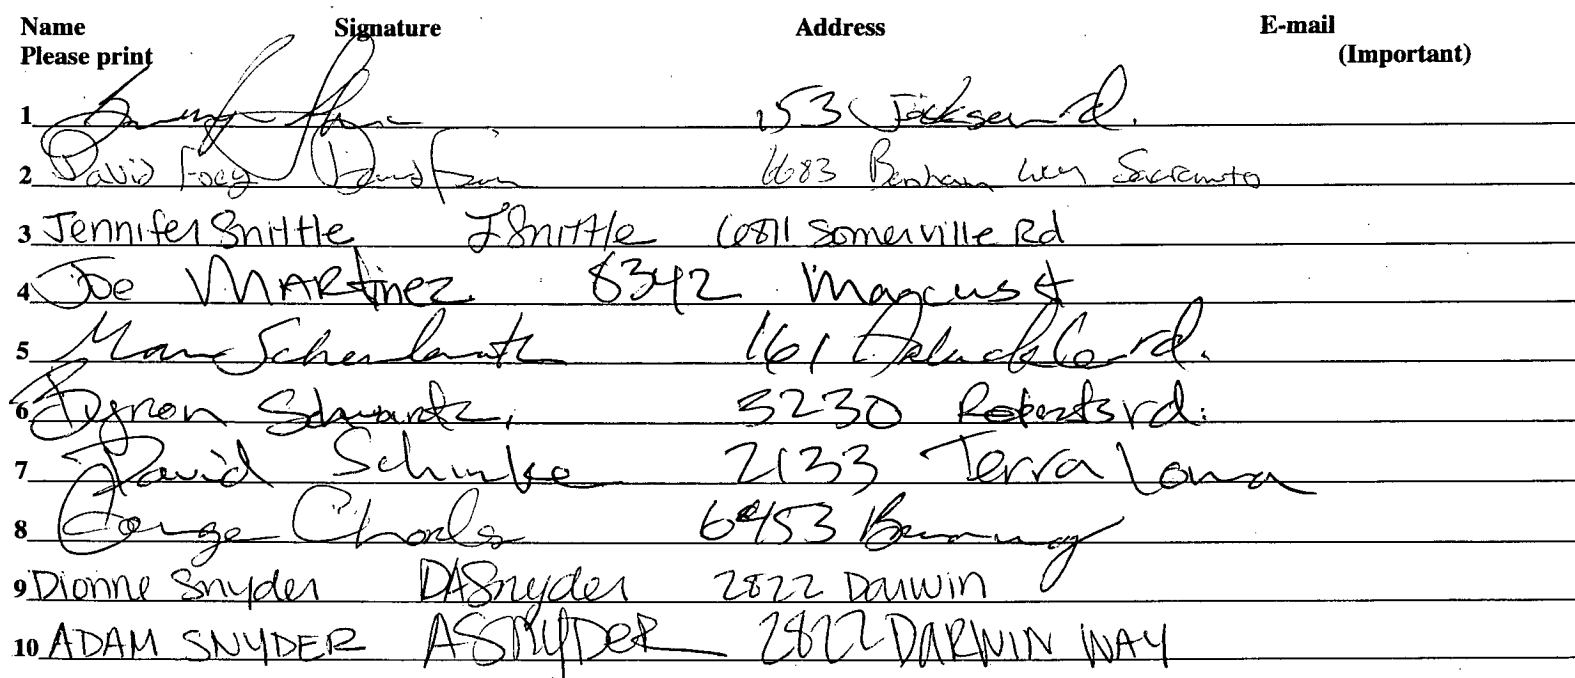 Name Signature Address E-mail
Please print (Important)
1 153 Jackson rd.
2 David 6683 Benham way Sacramento
3 Jennifer Snittle JSnittle 6811 Somerville Rd
4 Joe MARtinez 8342 Marcus st
5 161 rd.
6 Byron Schwartz. 5230 Roberts rd.
7 David Schinke 2133 Terra Loma
8 George Charles 6453
9 Dionne Snyder DASnyder 2822 Darwin
10 ADAM SNYDER ASNYDER 2822 DARWIN WAY